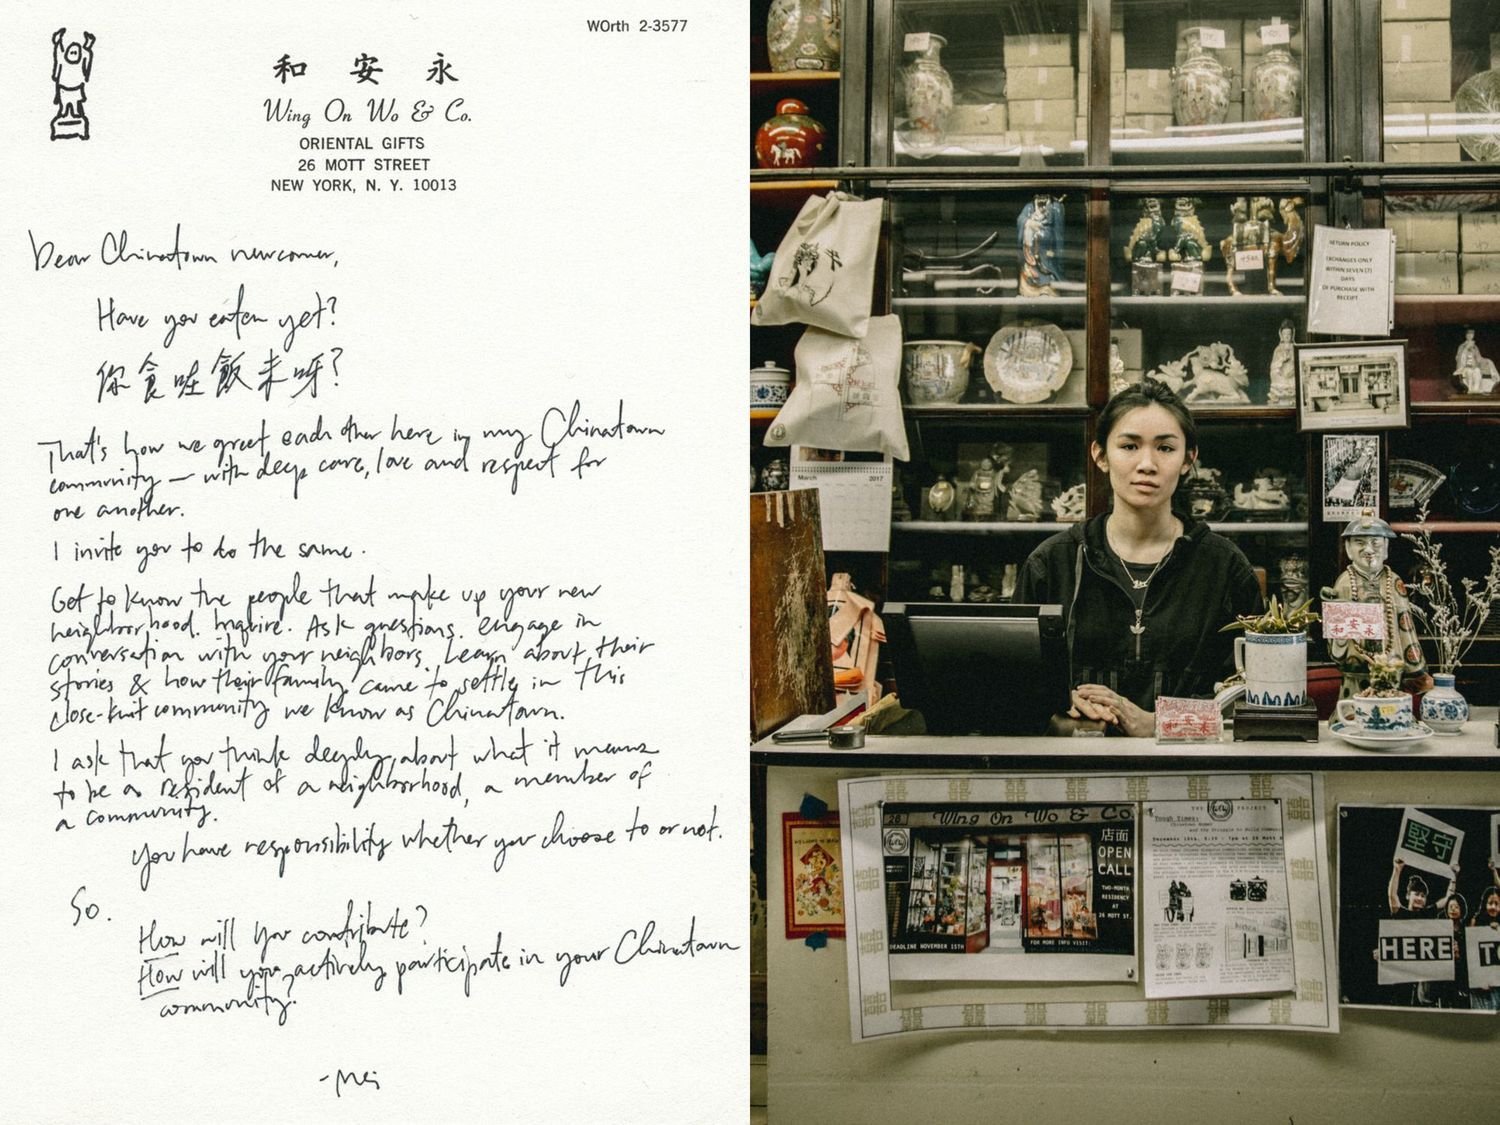 WOrth 2-3577
和 安 永
Wing On Wo & Co.
ORIENTAL GIFTS
26 MOTT STREET
NEW YORK, N. Y. 10013
Dear Chinatown newcomer,
Have you eaten yet?
你食咗飯未呀?
That's how we greet each other here in my Chinatown
community — with deep care, love and respect for
one another.
I invite you to do the same.
Get to know the people that make up your new
neighborhood. Inquire. Ask questions. Engage in
conversation with your neighbors. Learn about their
stories & how their family came to settle in this
close-knit community we know as Chinatown.
I ask that you think deeply about what it means
to be a resident of a neighborhood, a member of
a community.
You have responsibility whether you choose to or not.
So.
How will you contribute?
How will you actively participate in your Chinatown
community?
- Mei
RETURN POLICY
EXCHANGES ONLY
WITHIN SEVEN (7)
DAYS
OF PURCHASE WITH
RECEIPT
March 2017
和安永
和安永
26 Wing On Wo & Co.
店面
OPEN
CALL
TWO-MONTH
RESIDENCY
AT
26 MOTT ST.
DEADLINE NOVEMBER 15TH
FOR MORE INFO VISIT:
THE W.O.W PROJECT
Tough Times:
堅守
HERE
TO